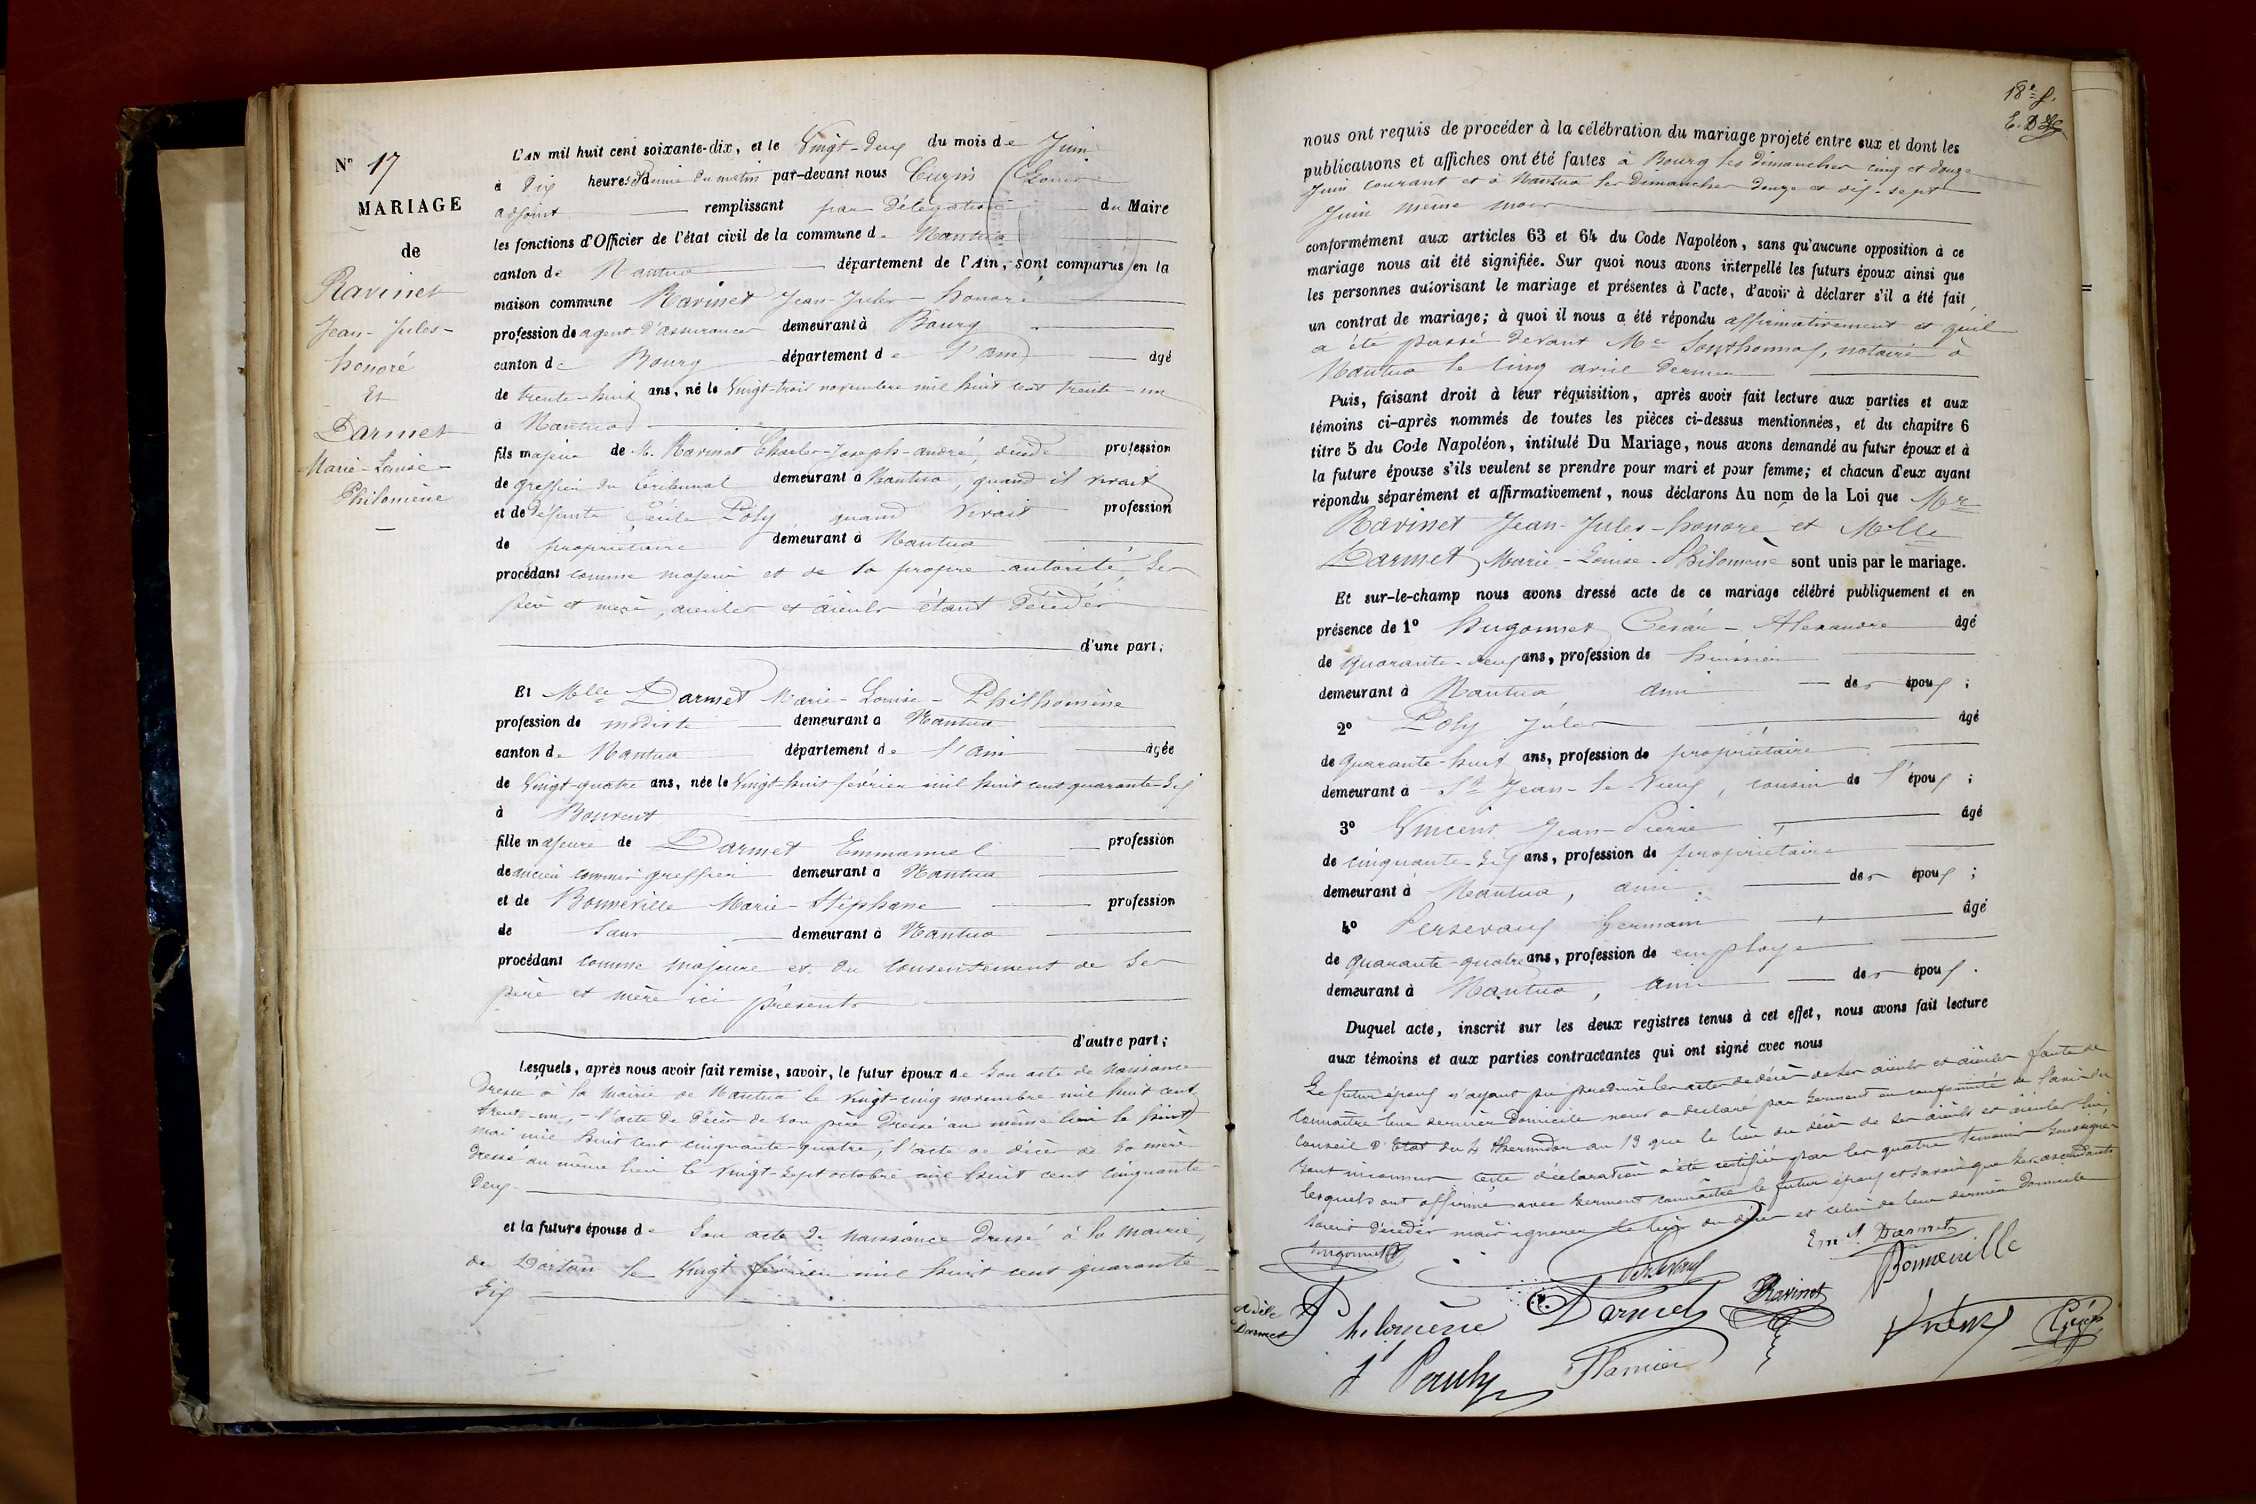 N° 17
MARIAGE
de
Ravinet
Jean-Jules-
honoré
Et
Darmet
Marie-Louise
Philomène
L'AN mil huit cent soixante-dix, et le Vingt-deux du mois de Juin
à Dix heures & demie du matin par-devant nous Cuzin Louis
adjoint remplissant par délégation du Maire
les fonctions d'Officier de l'état civil de la commune de Nantua
canton de Nantua département de l'Ain, sont comparus en la
maison commune Ravinet Jean-Jules-honoré
profession de agent d'assurances demeurant à Bourg
canton de Bourg département de l'ain âgé
de trente-huit ans, né le Vingt-trois novembre mil huit cent trente-un
à Nantua
fils majeur de M. Ravinet Charles-Joseph-andré, décédé profession
de greffier du tribunal demeurant à Nantua, quand il vivait
et de défunte Cécile Poly quand vivait profession
de propriétaire demeurant à Nantua
procédant comme majeur et de sa propre autorité, ses
père et mère, aieules et aieuls étant décédés
d'une part;
Et Melle Darmet Marie-Louise-Philhomène
profession de modiste demeurant à Nantua
canton de Nantua département de l'ain âgée
de Vingt-quatre ans, née le Vingt-huit février mil huit cent quarante-six
à Bouvent
fille majeure de Darmet Emmanuel profession
de ancien commis greffier demeurant à Nantua
et de Bonneville Marie-Stéphane profession
de Sans demeurant à Nantua
procédant comme majeure et du consentement de ses
père et mère ici présents
d'autre part;
Lesquels, après nous avoir fait remise, savoir, le futur époux de Son acte de naissance
dressé à la Mairie de Nantua le vingt-cinq novembre mil huit cent
trente-un, l'acte de décès de son père dressé au même lieu le huit
mai mil huit cent cinquante-quatre, l'acte de décès de sa mère
dressé au même lieu le vingt-sept octobre mil huit cent cinquante-
deux
et la future épouse de Son acte de naissance dressé à la Mairie
de Dortan le Vingt février mil huit cent quarante-
six
18e f.
nous ont requis de procéder à la célébration du mariage projeté entre eux et dont les
publications et affiches ont été faites à Bourg les dimanches cinq et douze
Juin courant et à Nantua les dimanches douze et dix-sept
Juin même mois
conformément aux articles 63 et 64 du Code Napoléon, sans qu'aucune opposition à ce
mariage nous ait été signifiée. Sur quoi nous avons interpellé les futurs époux ainsi que
les personnes autorisant le mariage et présentes à l'acte, d'avoir à déclarer s'il a été fait
un contrat de mariage; à quoi il nous a été répondu affirmativement et qu'il
a été passé devant Me Southonnax, notaire à
Nantua le cinq avril dernier
Puis, faisant droit à leur réquisition, après avoir fait lecture aux parties et aux
témoins ci-après nommés de toutes les pièces ci-dessus mentionnées, et du chapitre 6
titre 5 du Code Napoléon, intitulé Du Mariage, nous avons demandé au futur époux et à
la future épouse s'ils veulent se prendre pour mari et pour femme; et chacun d'eux ayant
répondu séparément et affirmativement, nous déclarons Au nom de la Loi que Mr
Ravinet Jean-Jules-honoré et Melle
Darmet Marie-Louise-Philomène sont unis par le mariage.
Et sur-le-champ nous avons dressé acte de ce mariage célébré publiquement et en
présence de 1° Hugonnet César-Alexandre âgé
de quarante-deux ans, profession de huissier
demeurant à Nantua ami des époux;
2° Poly Jules âgé
de quarante-huit ans, profession de propriétaire
demeurant à St Jean-le-Vieux, cousin de l'époux;
3° Vincent Jean-Pierre âgé
de cinquante-six ans, profession de propriétaire
demeurant à Nantua, ami des époux;
4° Persevaux Germain âgé
de quarante-quatre ans, profession de employé
demeurant à Nantua, ami des époux.
Duquel acte, inscrit sur les deux registres tenus à cet effet, nous avons fait lecture
aux témoins et aux parties contractantes qui ont signé avec nous
Le futur époux n'ayant pu produire les actes de décès de ses aïeuls et aïeules faute de
connaître leur dernier domicile nous a déclaré par serment en conformité de l'avis du
Conseil d'Etat du 4 thermidor an 13 que le lieu du décès de ses aïeuls et aïeules lui
sont inconnus cette déclaration a été certifiée par les quatre témoins soussignés
lesquels ont affirmé avec serment connaître le futur époux et savoir que ses ascendants
sont décédés mais ignorer le lieu du décès et celui de leur dernier domicile
Hugonnet
Persevaux
Emel Darmet
Bonneville
Adèle Darmet
Philomène Darmet
Ravinet